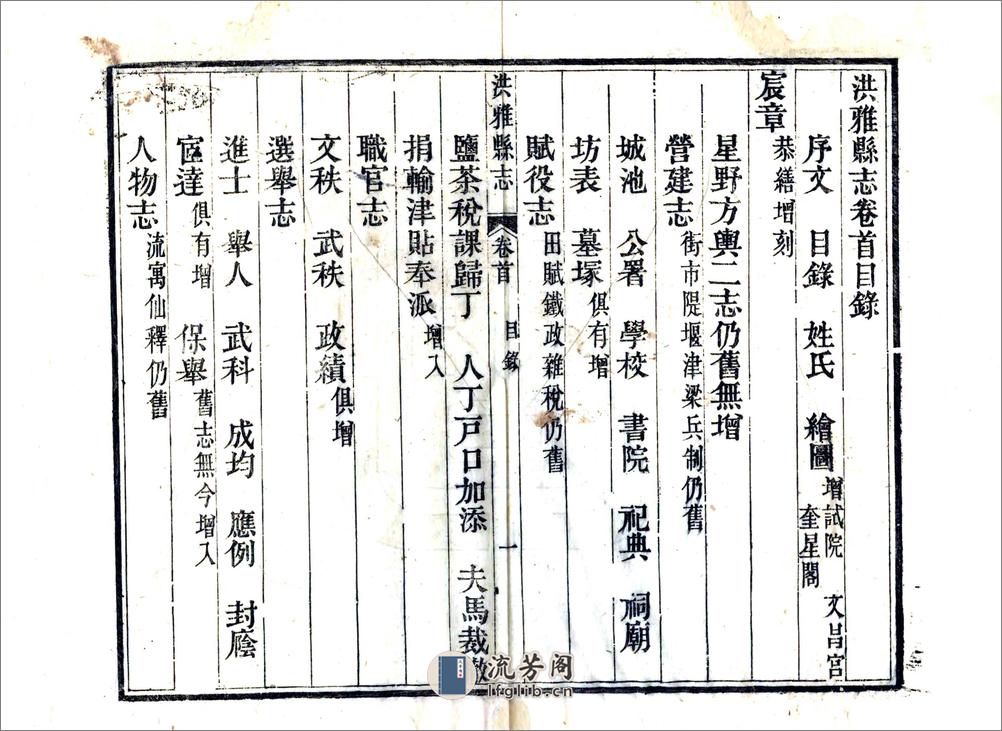 洪雅縣志卷首目錄
序文 目錄 姓氏 繪圖 增試院 奎星閣 文昌宮
宸章 恭繕增刻
星野方輿二志仍舊無增
營建志 街市隄堰津梁兵制仍舊
城池 公署 學校 書院 祀典 祠廟
坊表 墓塚 俱有增
賦役志 田賦鐵政雜稅仍舊
洪雅縣志 卷首 目錄 一
鹽茶稅課歸丁 人丁戸口加添 夫馬裁
捐輸津貼奉派 增入
職官志
文秩 武秩 政績 俱增
選舉志
進士 舉人 武科 成均 應例 封廕
宦達 俱有增 保舉 舊志無今增入
人物志 流寓仙釋仍舊
流芳阁
lfglib.cn